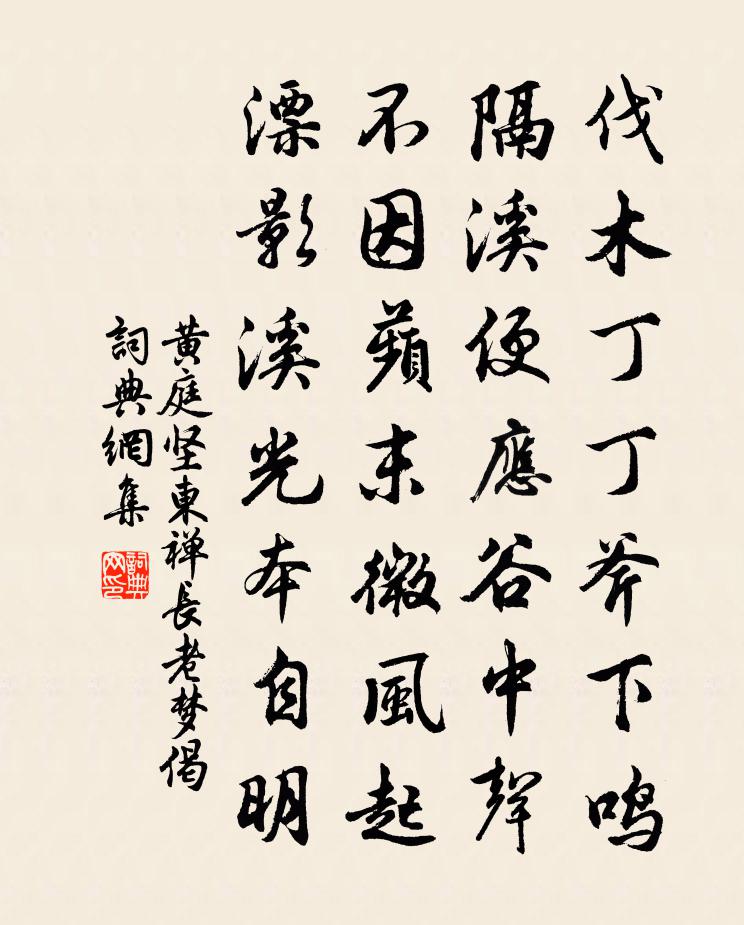 伐木丁丁斧下鸣
隔溪便應谷中聲
不因蘋末微風起
漂影溪光本自明
黄庭坚東禅長老梦偈
詞典網集
詞典网印